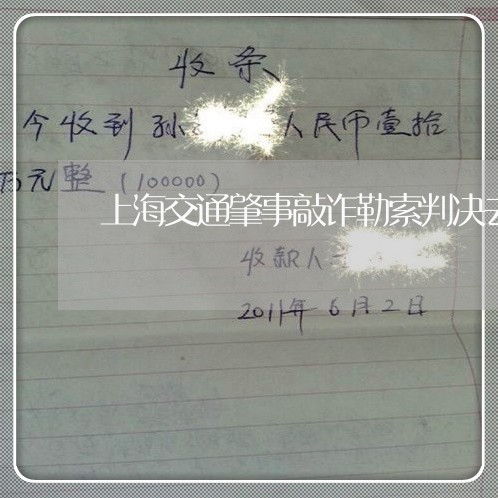 收条
今收到孙 人民币壹拾
万元整(100000)
上海交通肇事敲诈勒索判决
收款人
2011年6月2日